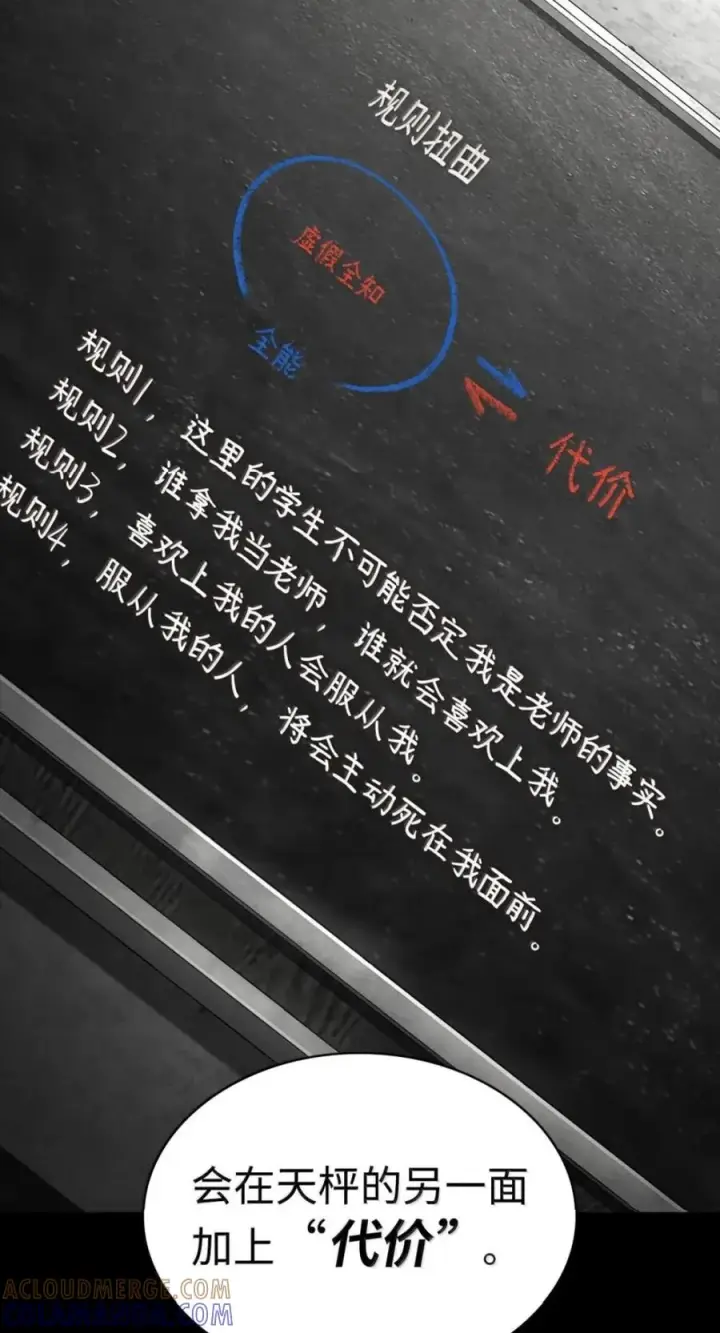 规则扭曲
虚假全知
全能
代价
规则1，这里的学生不可能否定我是老师的事实。
规则2，谁拿我当老师，谁就会喜欢上我。
规则3，喜欢上我的人会服从我。
规则4，服从我的人，将会主动死在我面前。
会在天枰的另一面
加上“代价”。
ACLOUDMERGE.COM